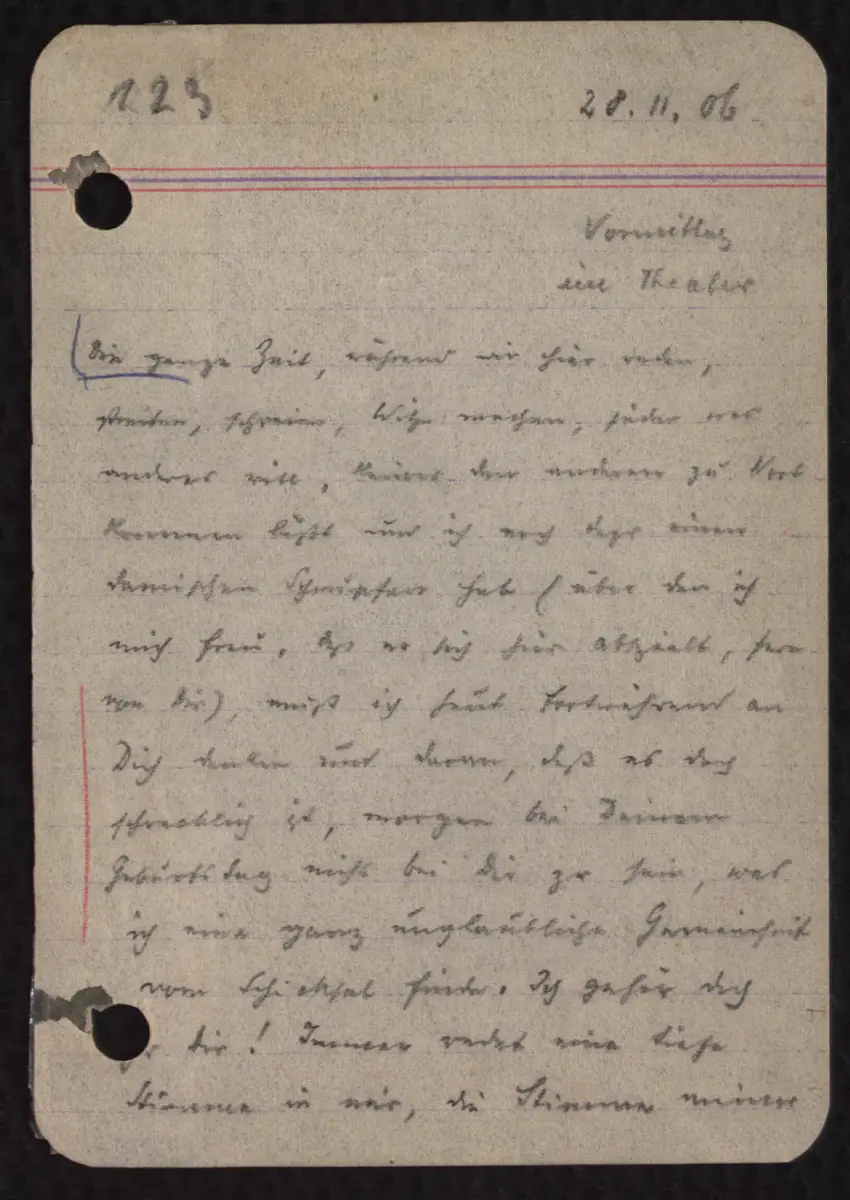 123
28. 11. 06
Vormittag
im Theater
Die ganze Zeit, während wir hier reden,
streiten, schreien, Witze machen, jeder was
anderes will, keiner den anderen zu Wort
kommen läßt und ich noch dazu einen
damischen Schnupfen habe (über den ich
mich freu, daß er sich hier abspielt, fern
von Dir), muß ich heut fortwährend an
Dich denken und daran, daß es doch
schrecklich ist, morgen bei Deinem
Geburtstag nicht bei Dir zu sein, was
ich eine ganz unglaubliche Gemeinheit
vom Schicksal finde. Ich gehör doch
zu Dir! Immer redet eine tiefe
Stimme in mir, die Stimme meiner